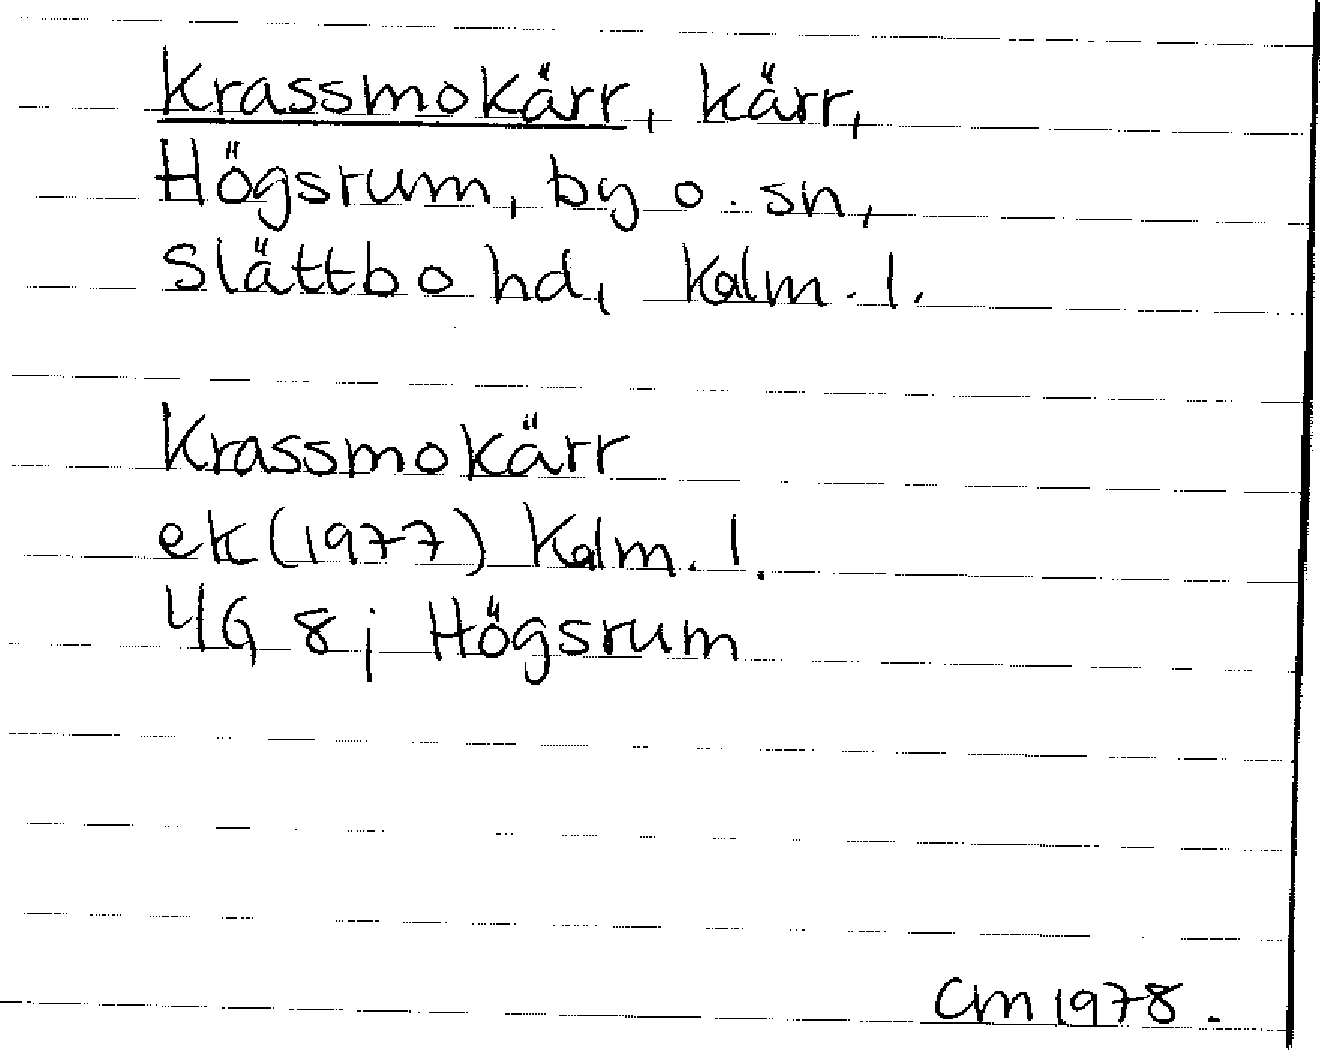 Krassmokärr, kärr,
Högsrum, by o. sn,
Slättbo hd, Kalm. l.
Krassmokärr
ek (1977) Kalm. l.
4G 8j Högsrum
CM 1978.